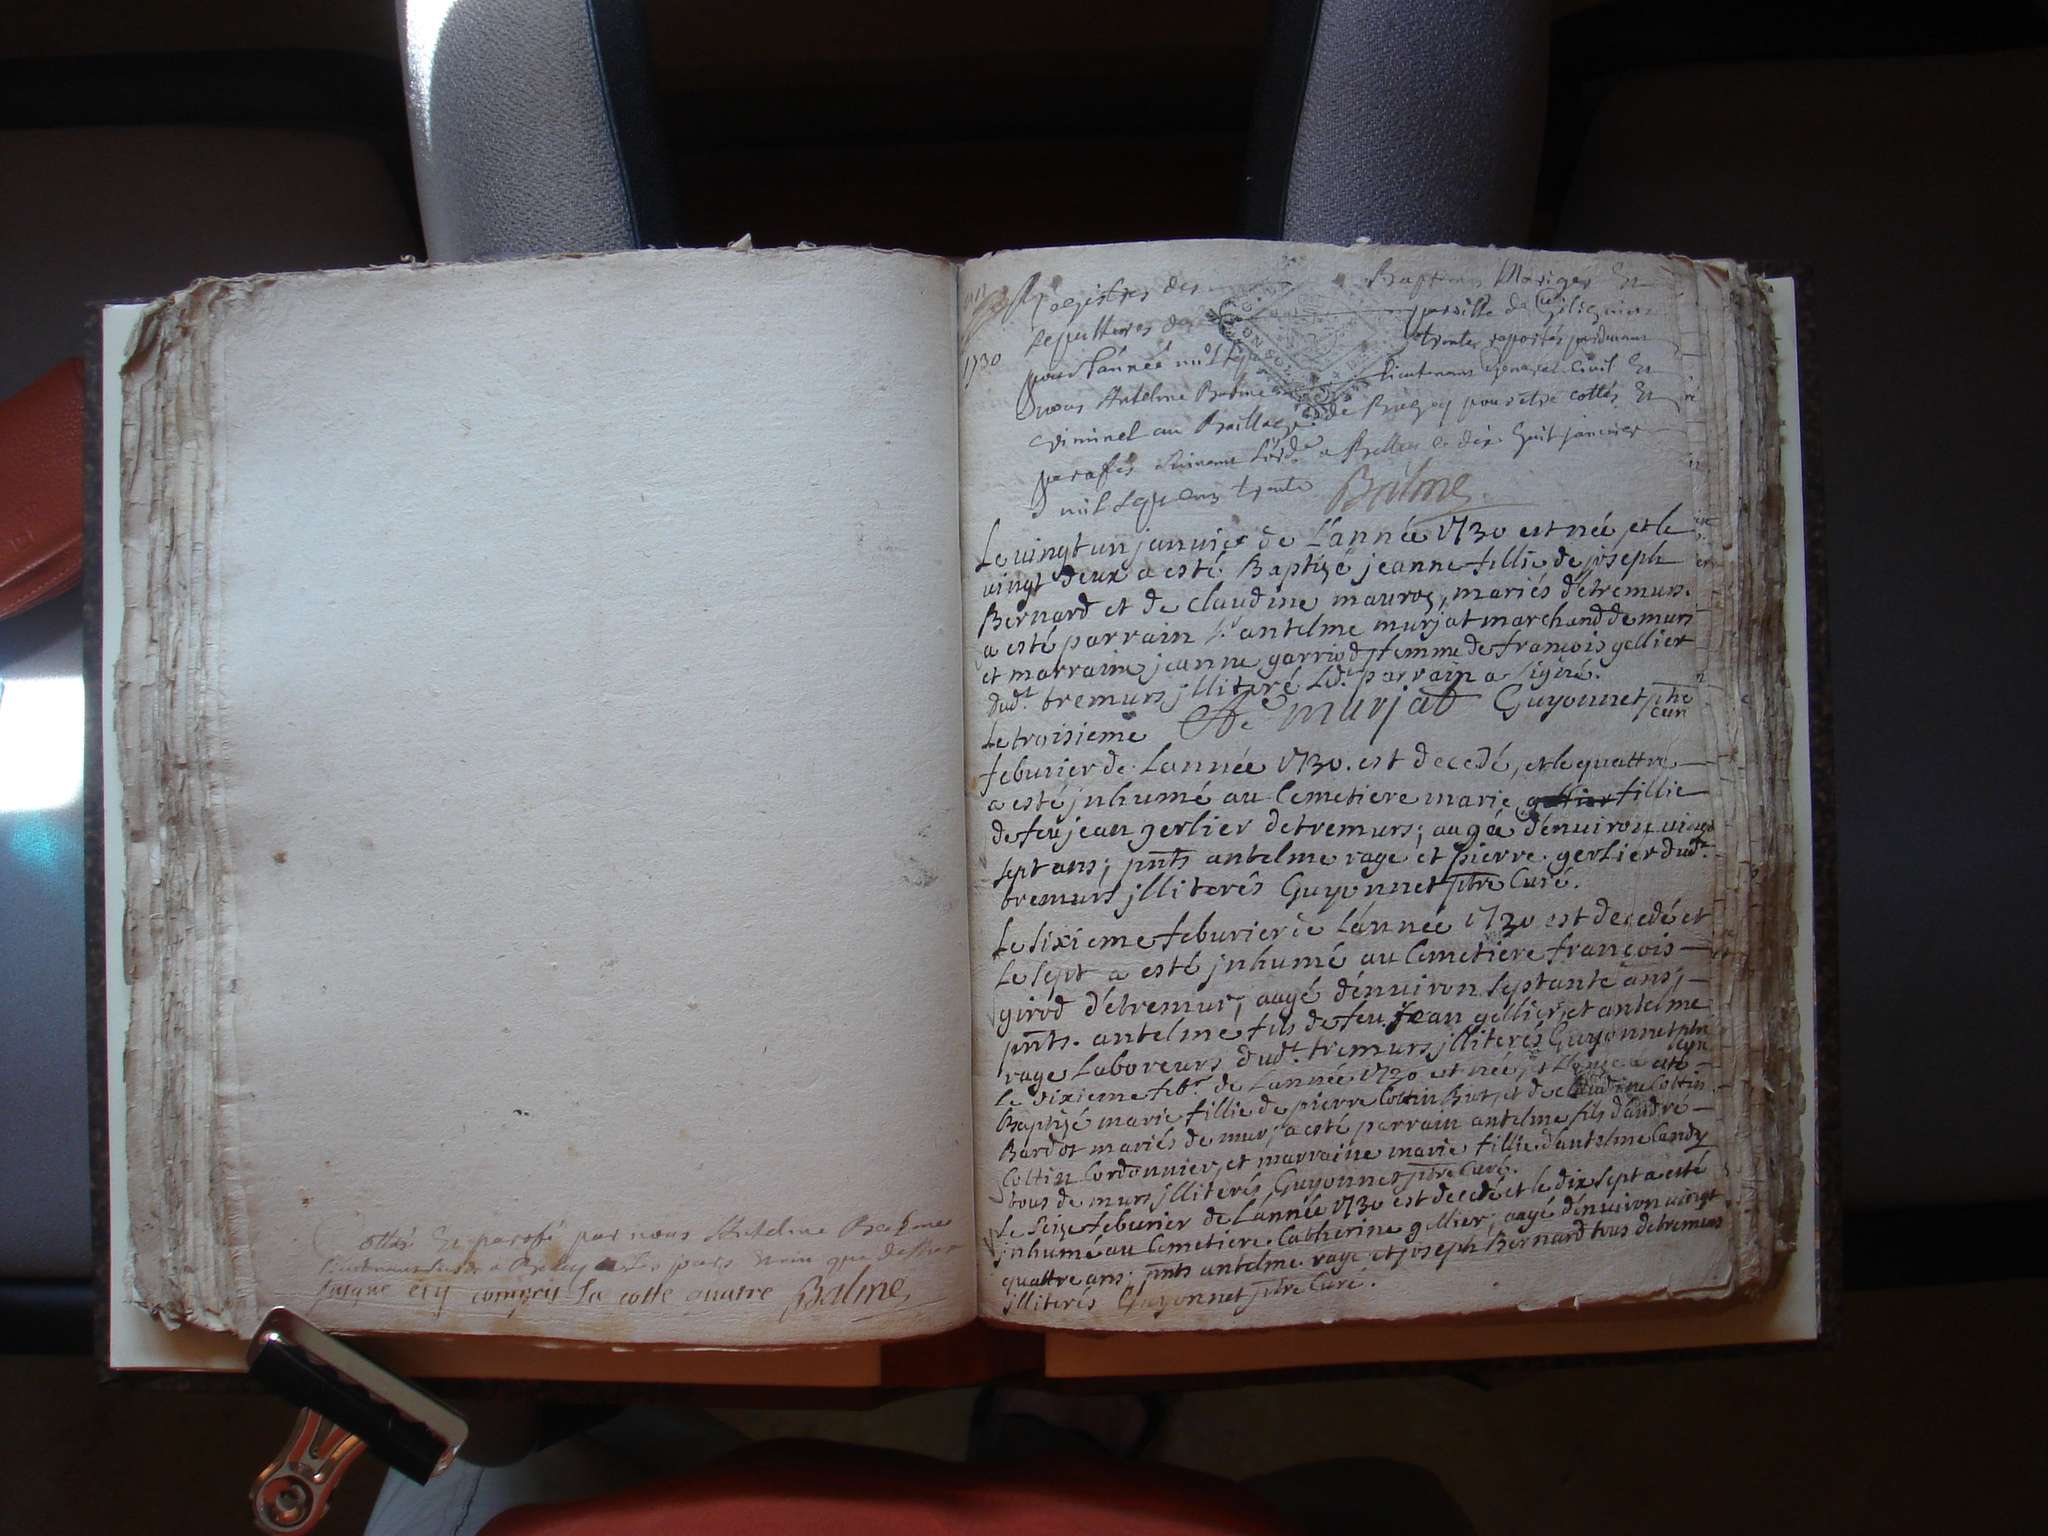 Cottés Et parafé par nous Antelme Balme
jusque icy compris la cotte quatre Balme
1730
Registres des Baptemes Mariges Et
sepultures de paroisse de
pour l'année mil sept trente raportés pardevant
nous Antelme Balme Lieutenant general Civil Et
Criminel au Bailliage de Bugey pour etre cottés Et
parafés suivant l'ord.e a Belley le dix huit janvier
mil sept cens trente Balme
Le vingt un janvier de L'année 1730 est née, et le
vingt deux a esté Baptizé jeanne fillie de joseph
Bernard et de claudine mauros, mariés détremurs.
a esté parrain s.r antelme murjat marchand de murs
et marraine jeanne garriod femme de francois gellier
dud.t tremurs jlliteré Led.t parrain a signé.
murjat Guyonnet ptre curé
Le troisieme
feburier de Lannée 1730. est decedé, et le quattre
a esté jnhumé au Cemetiere marie gellier fillie
de feu jean gerlier detremurs; augée dénuiron vingt
sept ans; pnts antelme rage et pierre gerlier dud.t
tremurs jlliterés Guyonnet ptre Curé.
Le sixieme feburier de L'année 1730 est decedé et
Le sept a esté jnhumé au Cemetiere françois
girod détremur, augé dénuiron septante ans,
pnts. antelme fils de feu Jean gellier, et antelme
rage Laboreurs dud.t tremurs jlliterés Guyonnet ptre Curé
Le dixieme feb.r de Lannée 1730 est née, et Lonze a esté
Baptizé marie fillie de pierre Cottin But, et de Claudine Cottin
Bardot mariés de mur, a esté parrain antelme fils d'andré
Cottin Cordonnier, et marraine marie fillie d'antelme Candy
tous de murs jlliterés Guyonnet ptre Curé.
Le seize feburier de L'année 1730 est decedé et le dix sept a esté
jnhumé au Cemetiere Catherine gellier, augé dénuiron vingt
quattre ans; pnts antelme rage et joseph Bernard tous detremurs
jlliterés Guyonnet ptre Curé.